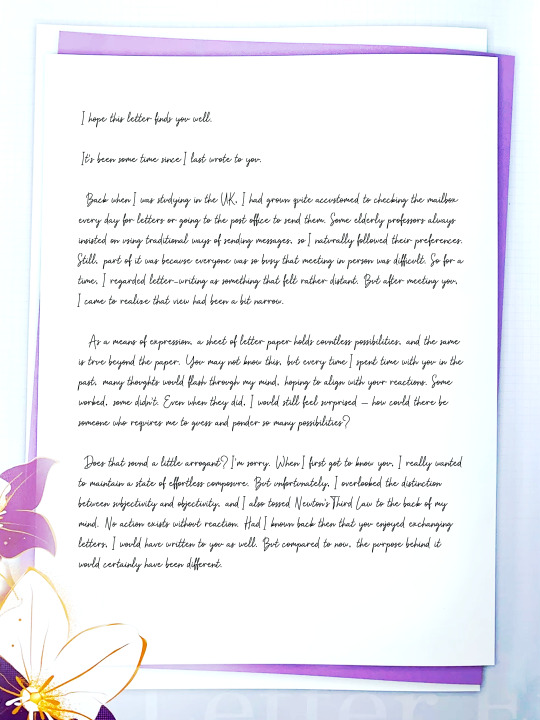 I hope this letter finds you well.
It's been some time since I last wrote to you.
Back when I was studying in the UK, I had grown quite accustomed to checking the mailbox
every day for letters or going to the post office to send them. Some elderly professors always
insisted on using traditional ways of sending messages, so I naturally followed their preferences.
Still, part of it was because everyone was so busy that meeting in person was difficult. So for a
time, I regarded letter-writing as something that felt rather distant. But after meeting you,
I came to realize that view had been a bit narrow.
As a means of expression, a sheet of letter paper holds countless possibilities, and the same
is true beyond the paper. You may not know this, but every time I spent time with you in the
past, many thoughts would flash through my mind, hoping to align with your reactions. Some
worked, some didn't. Even when they did, I would still feel surprised — how could there be
someone who requires me to guess and ponder so many possibilities?
Does that sound a little arrogant? I'm sorry. When I first got to know you, I really wanted
to maintain a state of effortless composure. But unfortunately, I overlooked the distinction
between subjectivity and objectivity, and I also tossed Newton's Third Law to the back of my
mind. No action exists without reaction. Had I known back then that you enjoyed exchanging
letters, I would have written to you as well. But compared to now, the purpose behind it
would certainly have been different.
Letter F